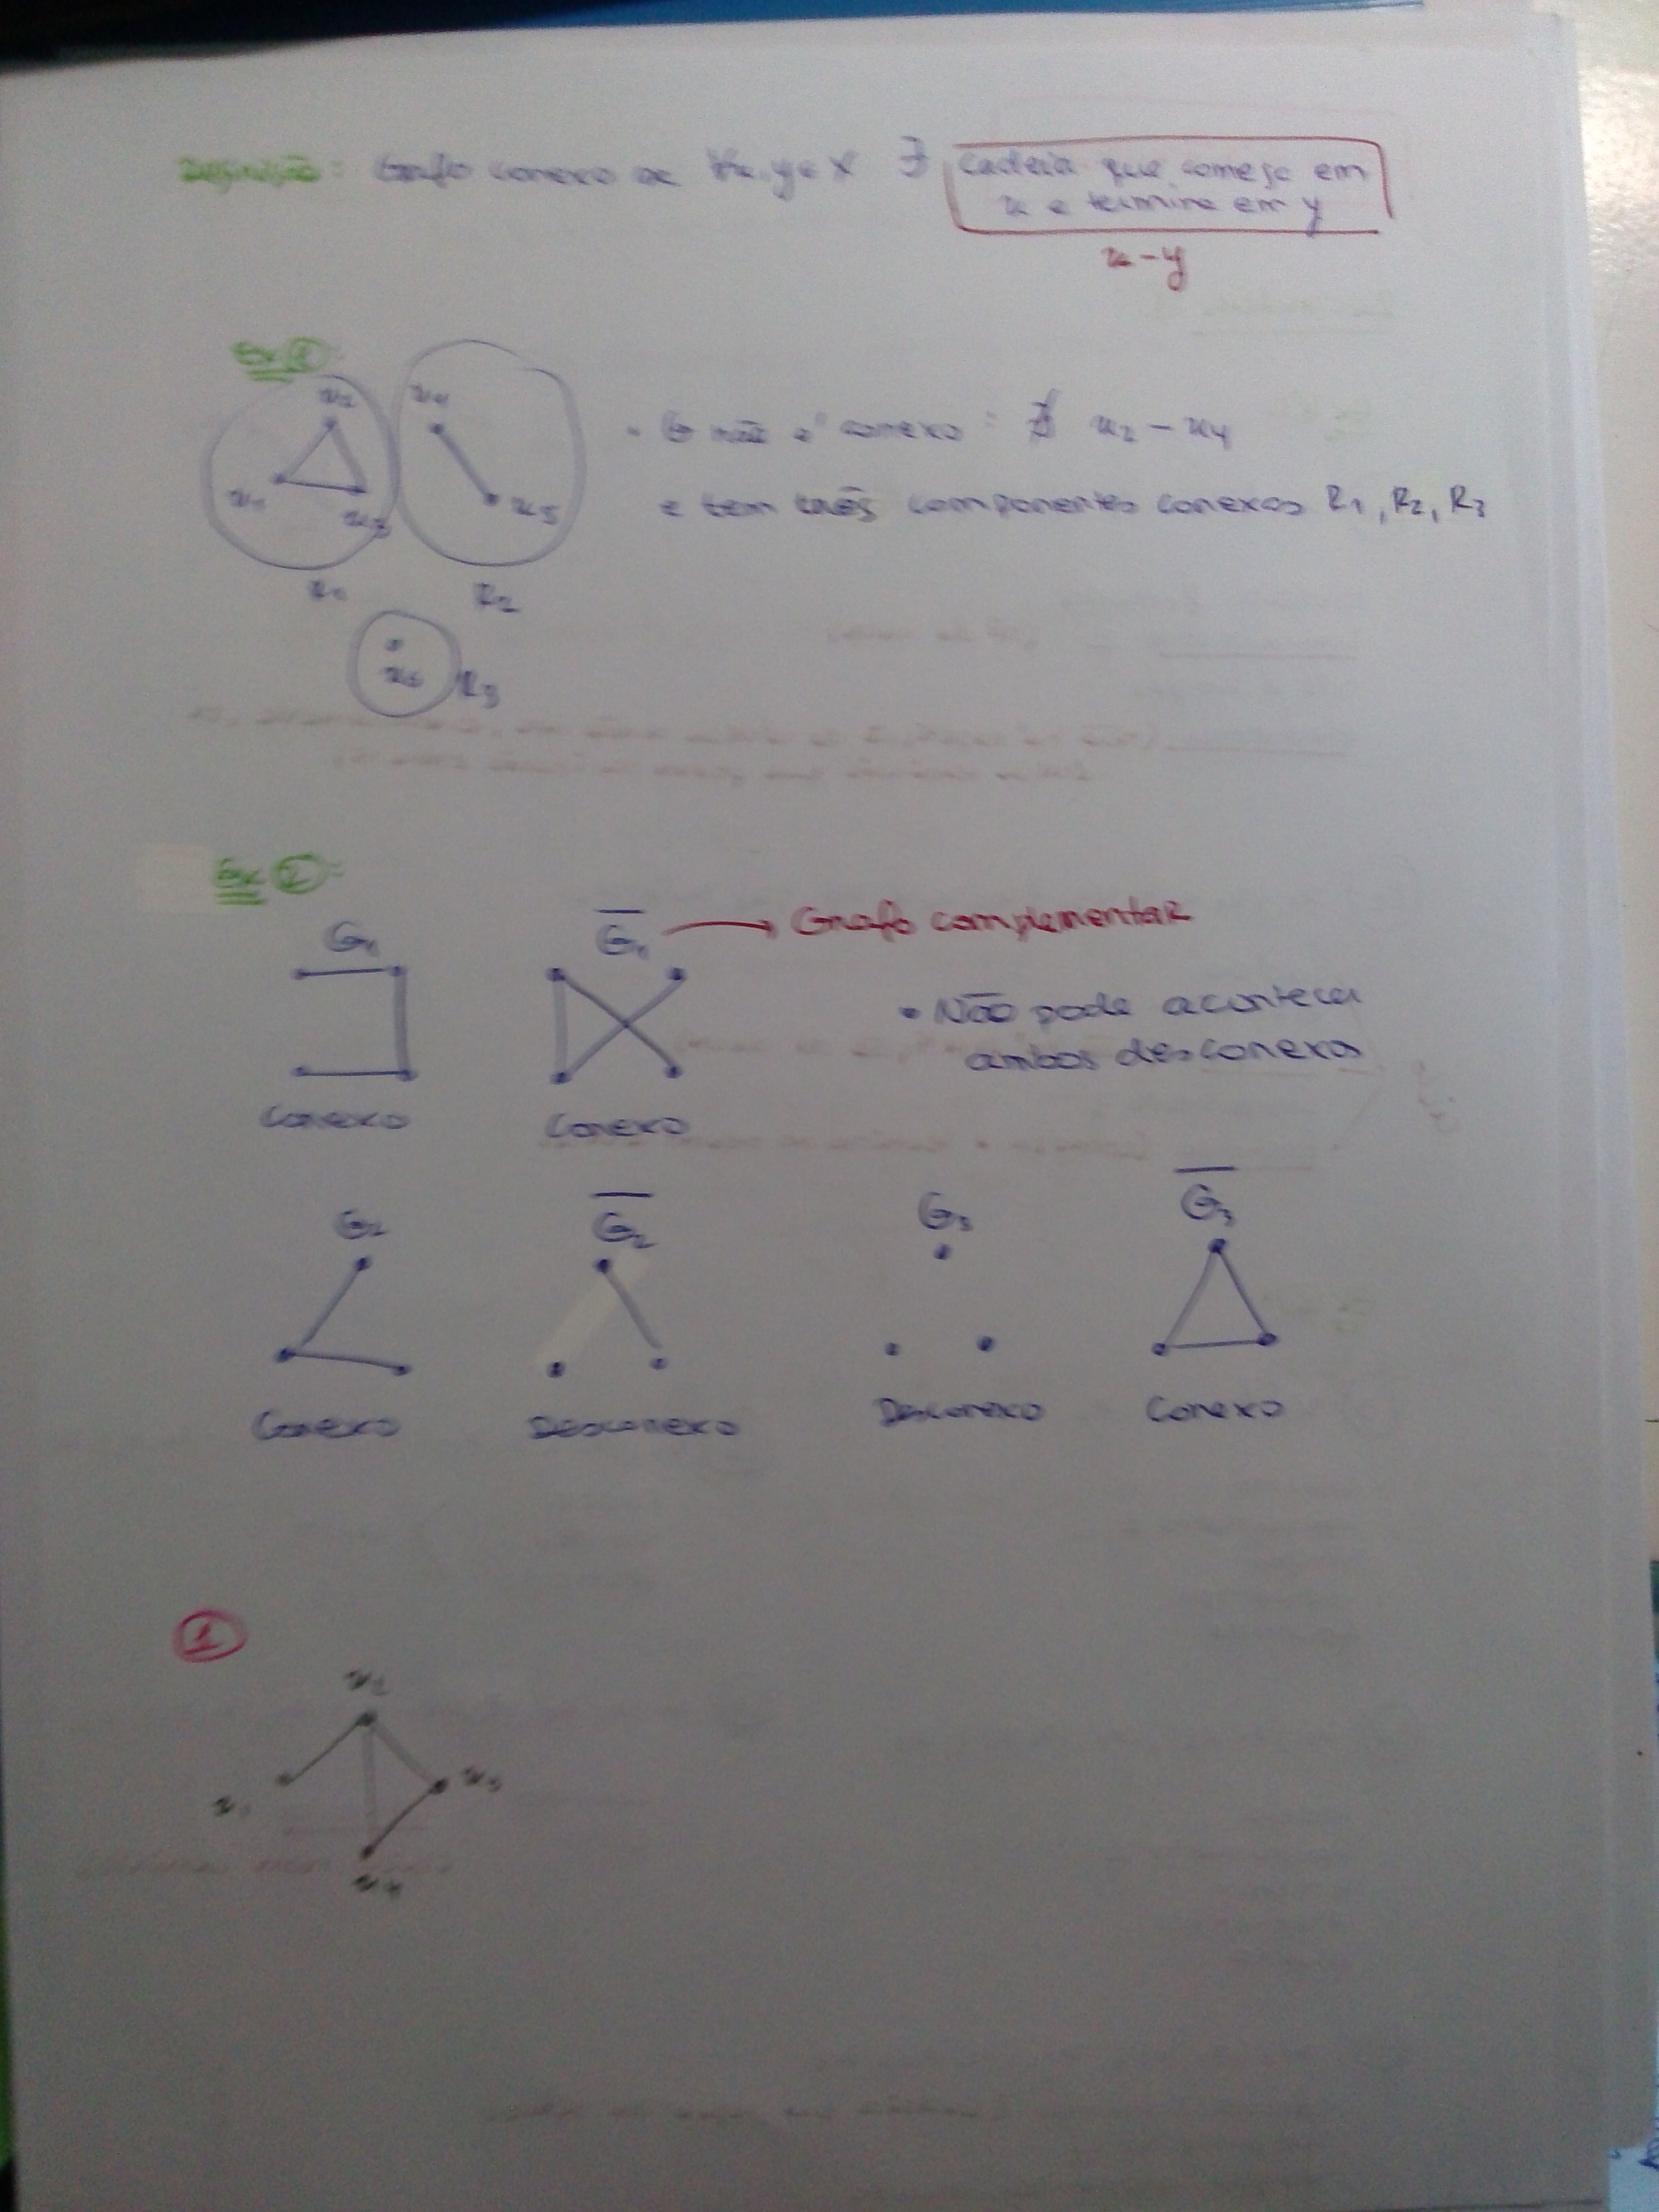 Definição: Grafo conexo se ∀x,y∈X ∃ cadeia que começe em
x e termine em y
x-y
Ex 1:
x2 x4
• G não é conexo: ∄ x2 - x4
x1 x3 x5
e tem três componentes conexos R1, R2, R3
R1 R2
x6 R3
Ex 2:
G1 G1 → Grafo complementar
• Não pode acontecer
ambos desconexos
Conexo Conexo
G2 G2 G3 G3
Conexo Desconexo Desconexo Conexo
1
x2
x1 x3
x4